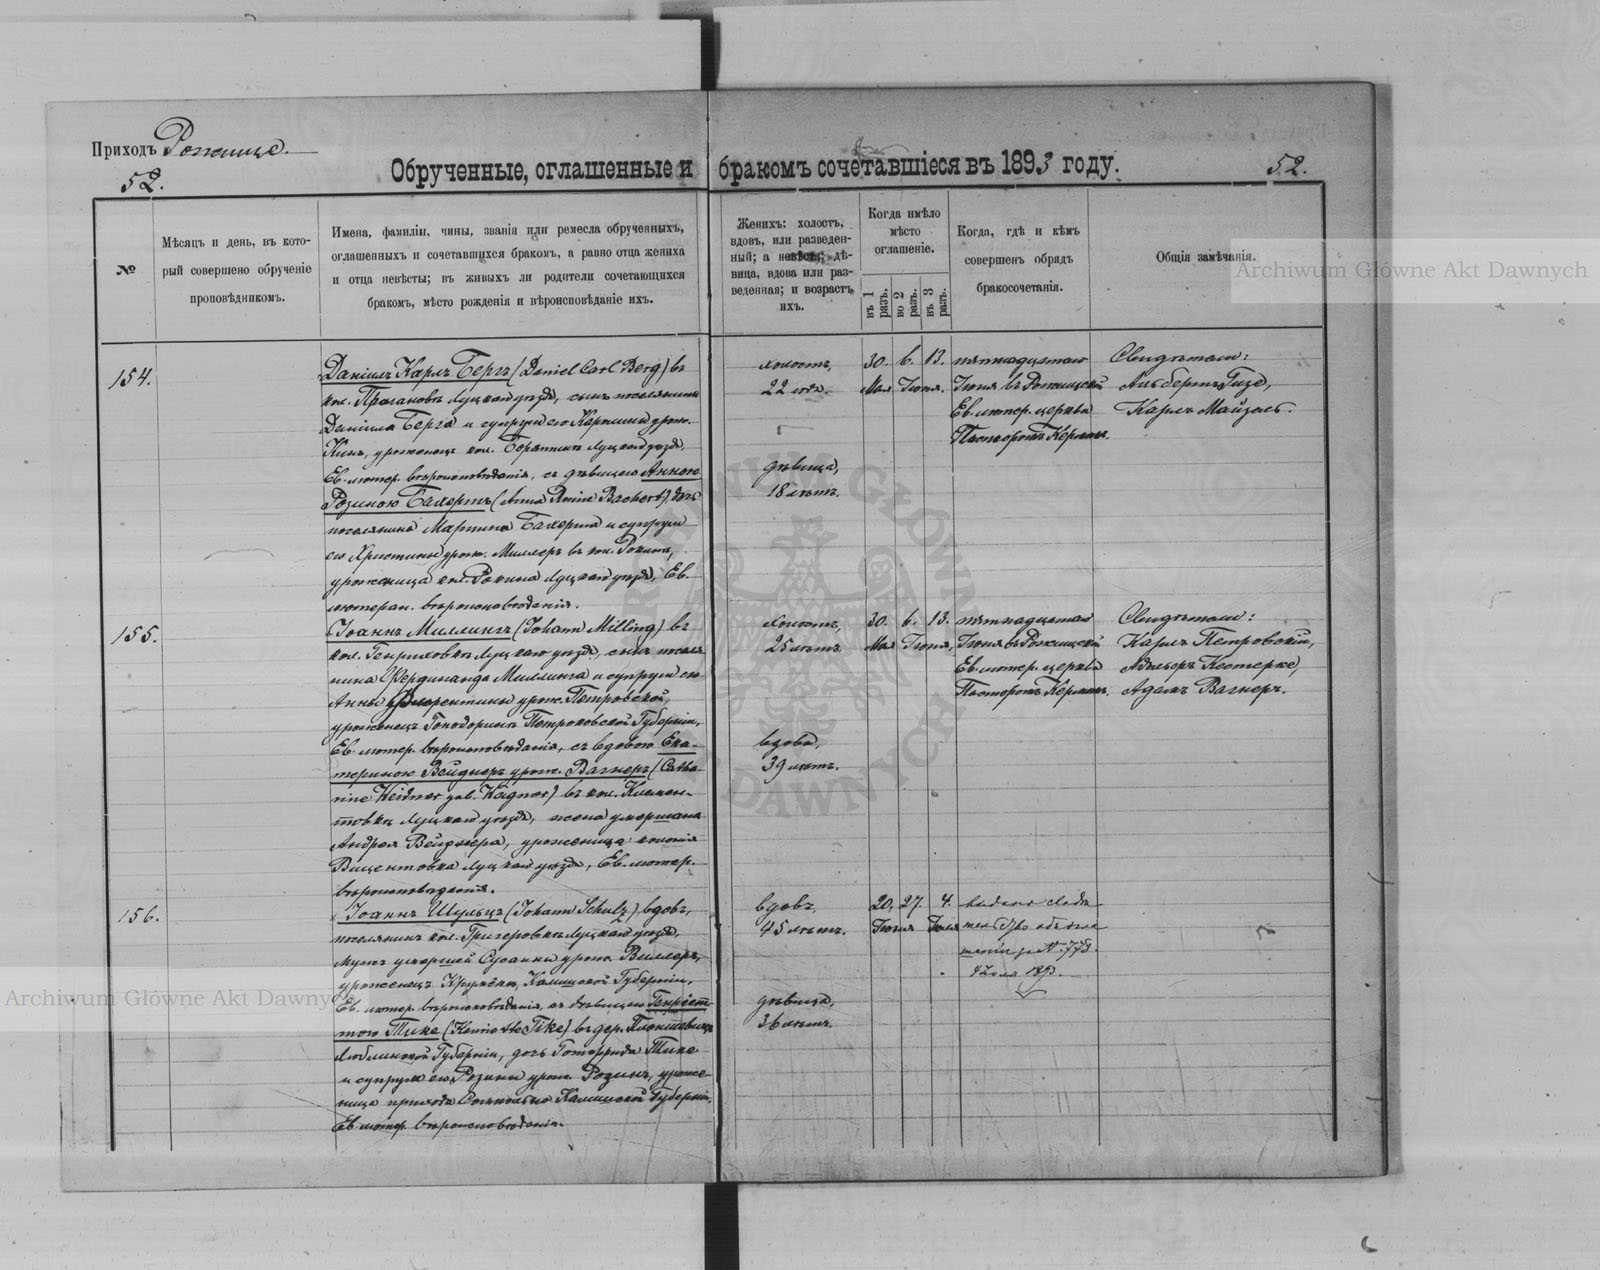 Приходъ Рожище.
52.
Обрученные, оглашенные и бракомъ сочетавшіеся въ 1893 году.
52.
№
Мѣсяцъ и день, въ кото-
рый совершено обрученіе
проповѣдникомъ.
Имена, фамиліи, чины, званія или ремесла обрученныхъ,
оглашенныхъ и сочетавшихся бракомъ, а равно отца жениха
и отца невѣсты; въ живыхъ ли родители сочетающихся
бракомъ, мѣсто рожденія и вѣроисповѣданіе ихъ.
Женихъ: холостъ,
вдовъ, или разведен-
ный; а невѣста: дѣ-
вица, вдова или раз-
веденная; и возрастъ
ихъ.
Когда имѣло
мѣсто
оглашеніе.
въ 1 разъ.
во 2 разъ.
въ 3 разъ.
Когда, гдѣ и кѣмъ
совершенъ обрядъ
бракосочетанія.
Общія замѣчанія.
Archiwum Główne Akt Dawnych
154.
Даніилъ Карлъ Бергъ (Daniel Carl Berg) въ
кол. Луцкаго уѣзда, сынъ поселянина
Даніила Берга и супруги его Каролины урож.
Кинъ, уроженецъ кол. Луцкаго уѣзда,
Ев. лютер. вѣроисповѣданія, съ дѣвицею Анною
Розиною Бахертъ (Anna Rosine Bachert), дочь
поселянина Мартина Бахерта и супруги
его Христины урож. Миллеръ въ кол. Рокини,
уроженица кол. Рокини Луцкаго уѣзда, Ев.
лютеран. вѣроисповѣданія.
холостъ,
22 года.
дѣвица,
18 лѣтъ.
30. 6. 13.
Мая Іюня.
пятнадцатаго
Іюня въ Рожищской
Ев. лютер. церкви
Пасторомъ Керномъ.
Свидѣтели:
Альбертъ Гизе,
Карлъ Майзель.
155.
Іоаннъ Миллингъ (Johann Milling) въ
кол. Генриховкѣ Луцкаго уѣзда, сынъ поселя
нина Фердинанда Миллинга и супруги его
Анны Флорентины урож. Петровской,
уроженецъ Петроковской Губерніи,
Ев. лютер. вѣроисповѣданія, съ вдовою Ека-
териною Вейднеръ урож. Вагнеръ (Catha-
rine Weidner geb. Wagner) въ кол. Климен-
товкѣ Луцкаго уѣзда, жена умершаго
Андрея Вейднера, уроженица колоніи
Вицентовка Луцкаго уѣзда, Ев. лютер.
вѣроисповѣданія.
холостъ,
25 лѣтъ.
вдова,
39 лѣтъ.
30. 6. 13.
Мая Іюня,
пятнадцатаго
Іюня въ Рожищской
Ев. лютер. церкви
Пасторомъ Керномъ.
Свидѣтели:
Карлъ Петровскій,
Кестерке,
Адамъ Вагнеръ.
156.
Іоаннъ Шульцъ (Johann Schulz) вдовъ,
поселянинъ кол. Луцкаго уѣзда,
мужъ умершей Сусанны урож. Виллеръ,
уроженецъ Калишской Губерніи,
Ев. лютер. вѣроисповѣданія, съ дѣвицею Генріет-
тою Тике (Henriette Tike) въ дер.
Люблинской Губерніи, дочь Готфрида Тике
и супруги его Розины урож. Розинъ, уроже-
ница прихода Калишской Губерніи,
Ев. лютер. вѣроисповѣданія.
вдовъ,
45 лѣтъ.
дѣвица,
36 лѣтъ.
20. 27. 4.
Іюня Іюля
за №. 778.
4 Іюля 1893.
Archiwum Główne Akt Dawnych